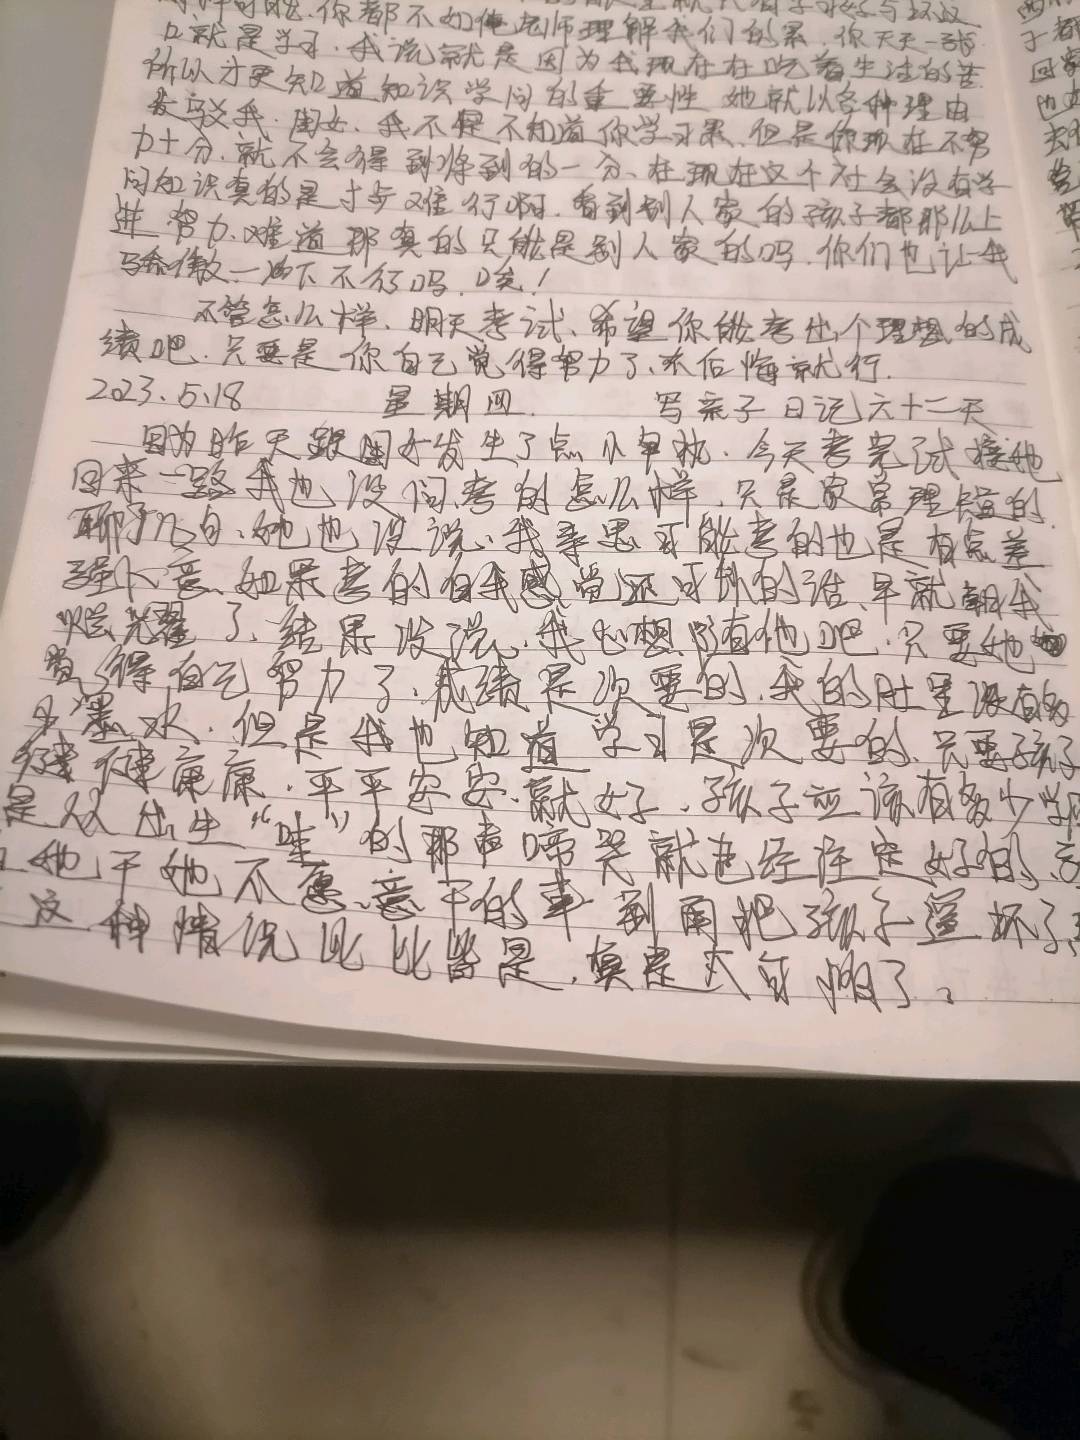 你都不如他老师理解我们的累，你天天一张
口就是学习，我说就是因为我现在在吃着生活的苦
所以才更知道知识学问的重要性 她就以各种理由
我，闺女，我不是不知道你学习累，但是你现在不努
力十分，就不会得到得到的一分、在现在这个社会没有学
问知识真的是寸步难行啊，看到别人家的孩子都那么上
进 努力、难道那真的只能是别人家的吗，你们也让我
骄傲一下不行吗，唉！
不管怎么样，明天考试、希望你能考出个理想的成
绩吧，只要是你自己觉得努力了、不后悔就行.
2023.5.18 星期四. 写亲子日记六十二天
因为昨天跟闺女发生了点小争执，今天考完试接她
回来一路我也没问考的怎么样，只是家常理短的
聊了几句、她也没说、我寻思可能考的也是有点差
强人意、如果考的自我感觉还可以的话、早就朝我
炫耀了、结果没说，我心想随他吧，只要她
觉得自己努力了，成绩是次要的，我的肚里没有多
少墨水，但是我也知道学习是次要的、只要孩子
健健康康，平平安安、就好，孩子应该有多少学问
是从出生“哇”的那声啼哭就已经注定好的、
她干她不愿意干的事 到闹把孩子逼坏了，
这种情况比比皆是，真是太可惜了、